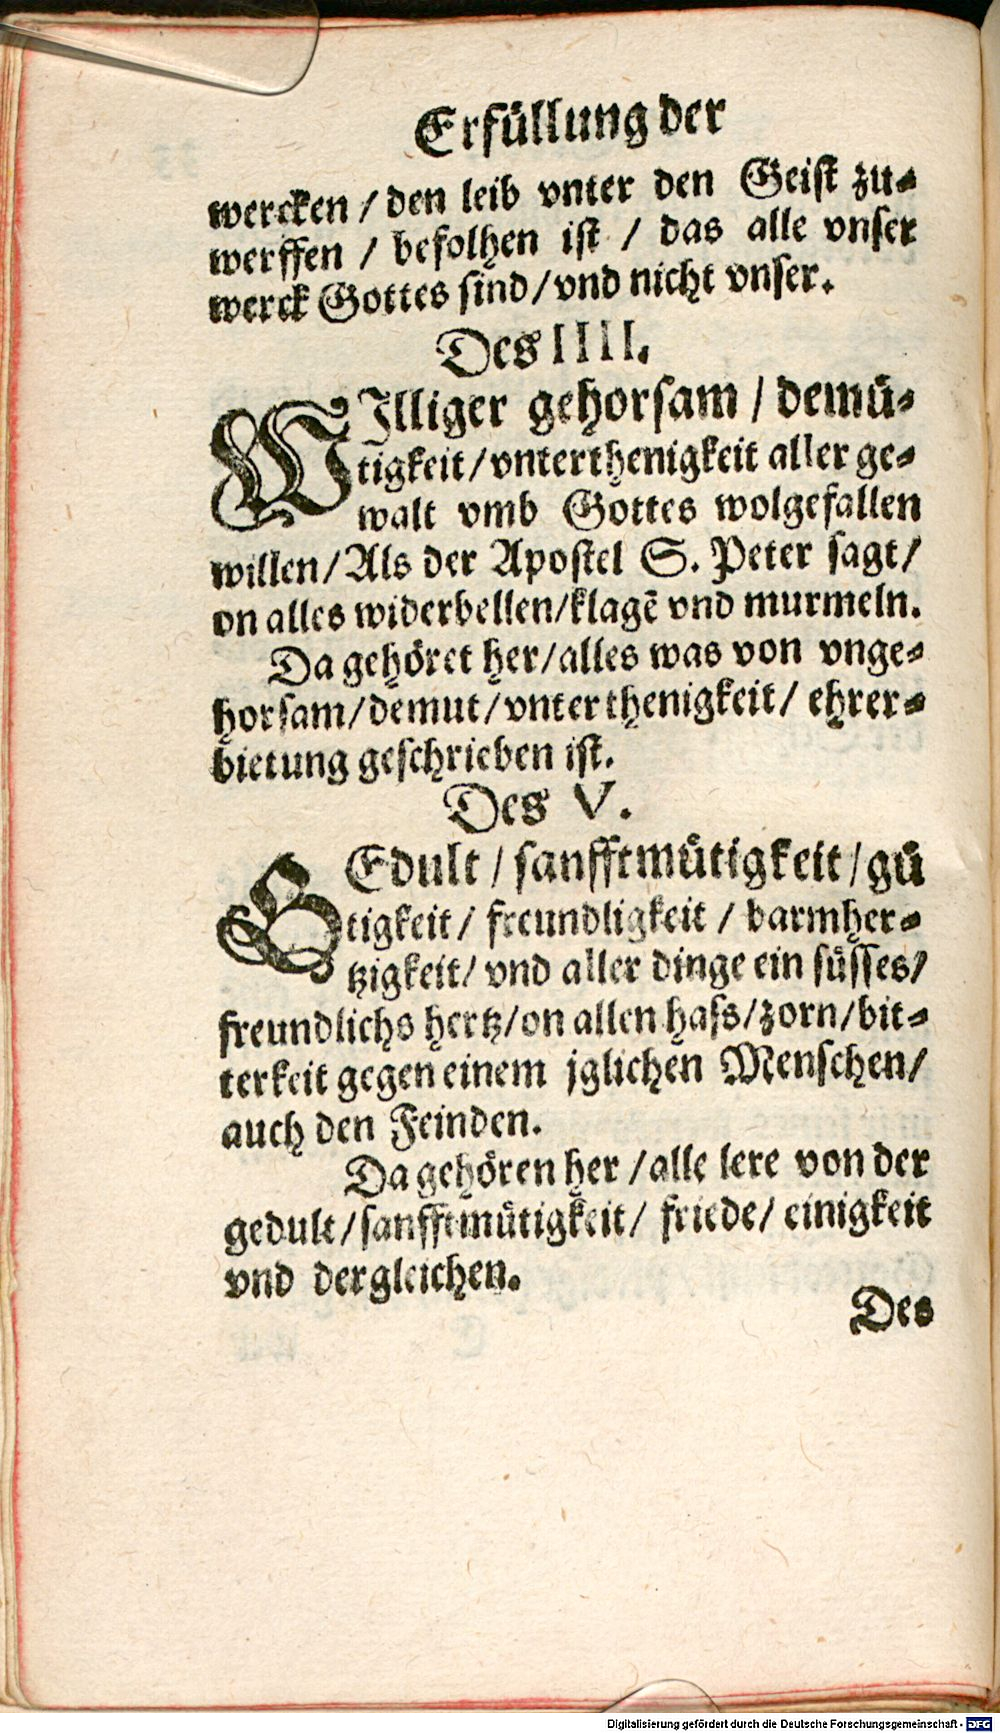 Erfüllung der
wercken / den leib vnter den Geist zu⸗
werffen / befolhen ist / das alle vnser
werck Gottes sind / vnd nicht vnser.
Des IIII.
WIlliger gehorsam / demü⸗
tigkeit / vnterthenigkeit aller ge⸗
walt vmb Gottes wolgefallen
willen / Als der Apostel S. Peter sagt /
on alles widerbellen / klagē vnd murmeln.
Da gehöret her / alles was von vnge⸗
horsam / demut / vnterthenigkeit / ehrer⸗
bietung geschrieben ist.
Des V.
GEdult / sanfftmütigkeit / gü
tigkeit / freundligkeit / barmher⸗
tzigkeit / vnd aller dinge ein süsses /
freundlichs hertz / on allen hass / zorn / bit⸗
terkeit gegen einem jglichen Menschen /
auch den Feinden.
Da gehören her / alle lere von der
gedult / sanfftmütigkeit / friede / einigkeit
vnd dergleichen.
Des
Digitalisierung gefördert durch die Deutsche Forschungsgemeinschaft - DFG